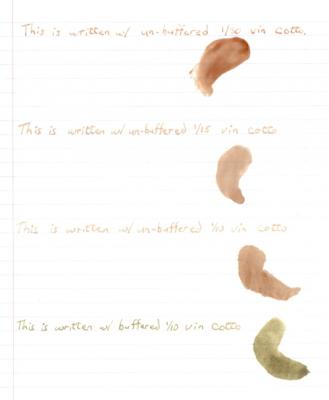 This is written w/ un-buffered 1/20 vin cotto.
This is written w/ un-buffered 1/15 vin cotto
This is written w/ un-buffered 1/10 vin cotto
This is written w/ buffered 1/10 vin cotto